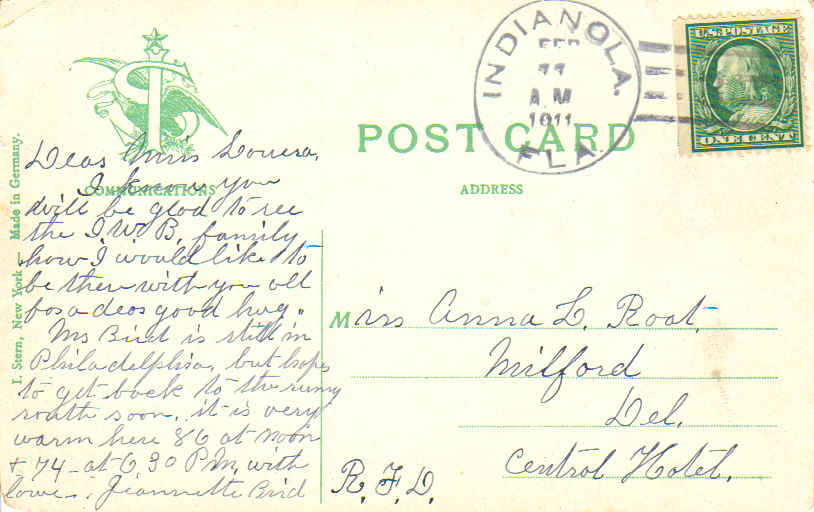 INDIANOLA.
FEB
A.M
1911
FLA.
U.S. POSTAGE
ONE CENT
POST CARD
ADDRESS
COMMUNICATIONS
I. Stern, New York — Made in Germany.
Dear Miss Louisa,
I know you
will be glad to see
the I W B, family
how I would like to
be there with you all
for a dear good hug.
Mr Bird is still in
Philadelphia, but hopes
to get back to the sunny
south soon, it is very
warm here 86 at noon
+ 74 - at 6 30 P M, with
love - : Jeannette Bird
Miss Anna L. Root,
Milford
Del.
Central Hotel.
R.F.D.